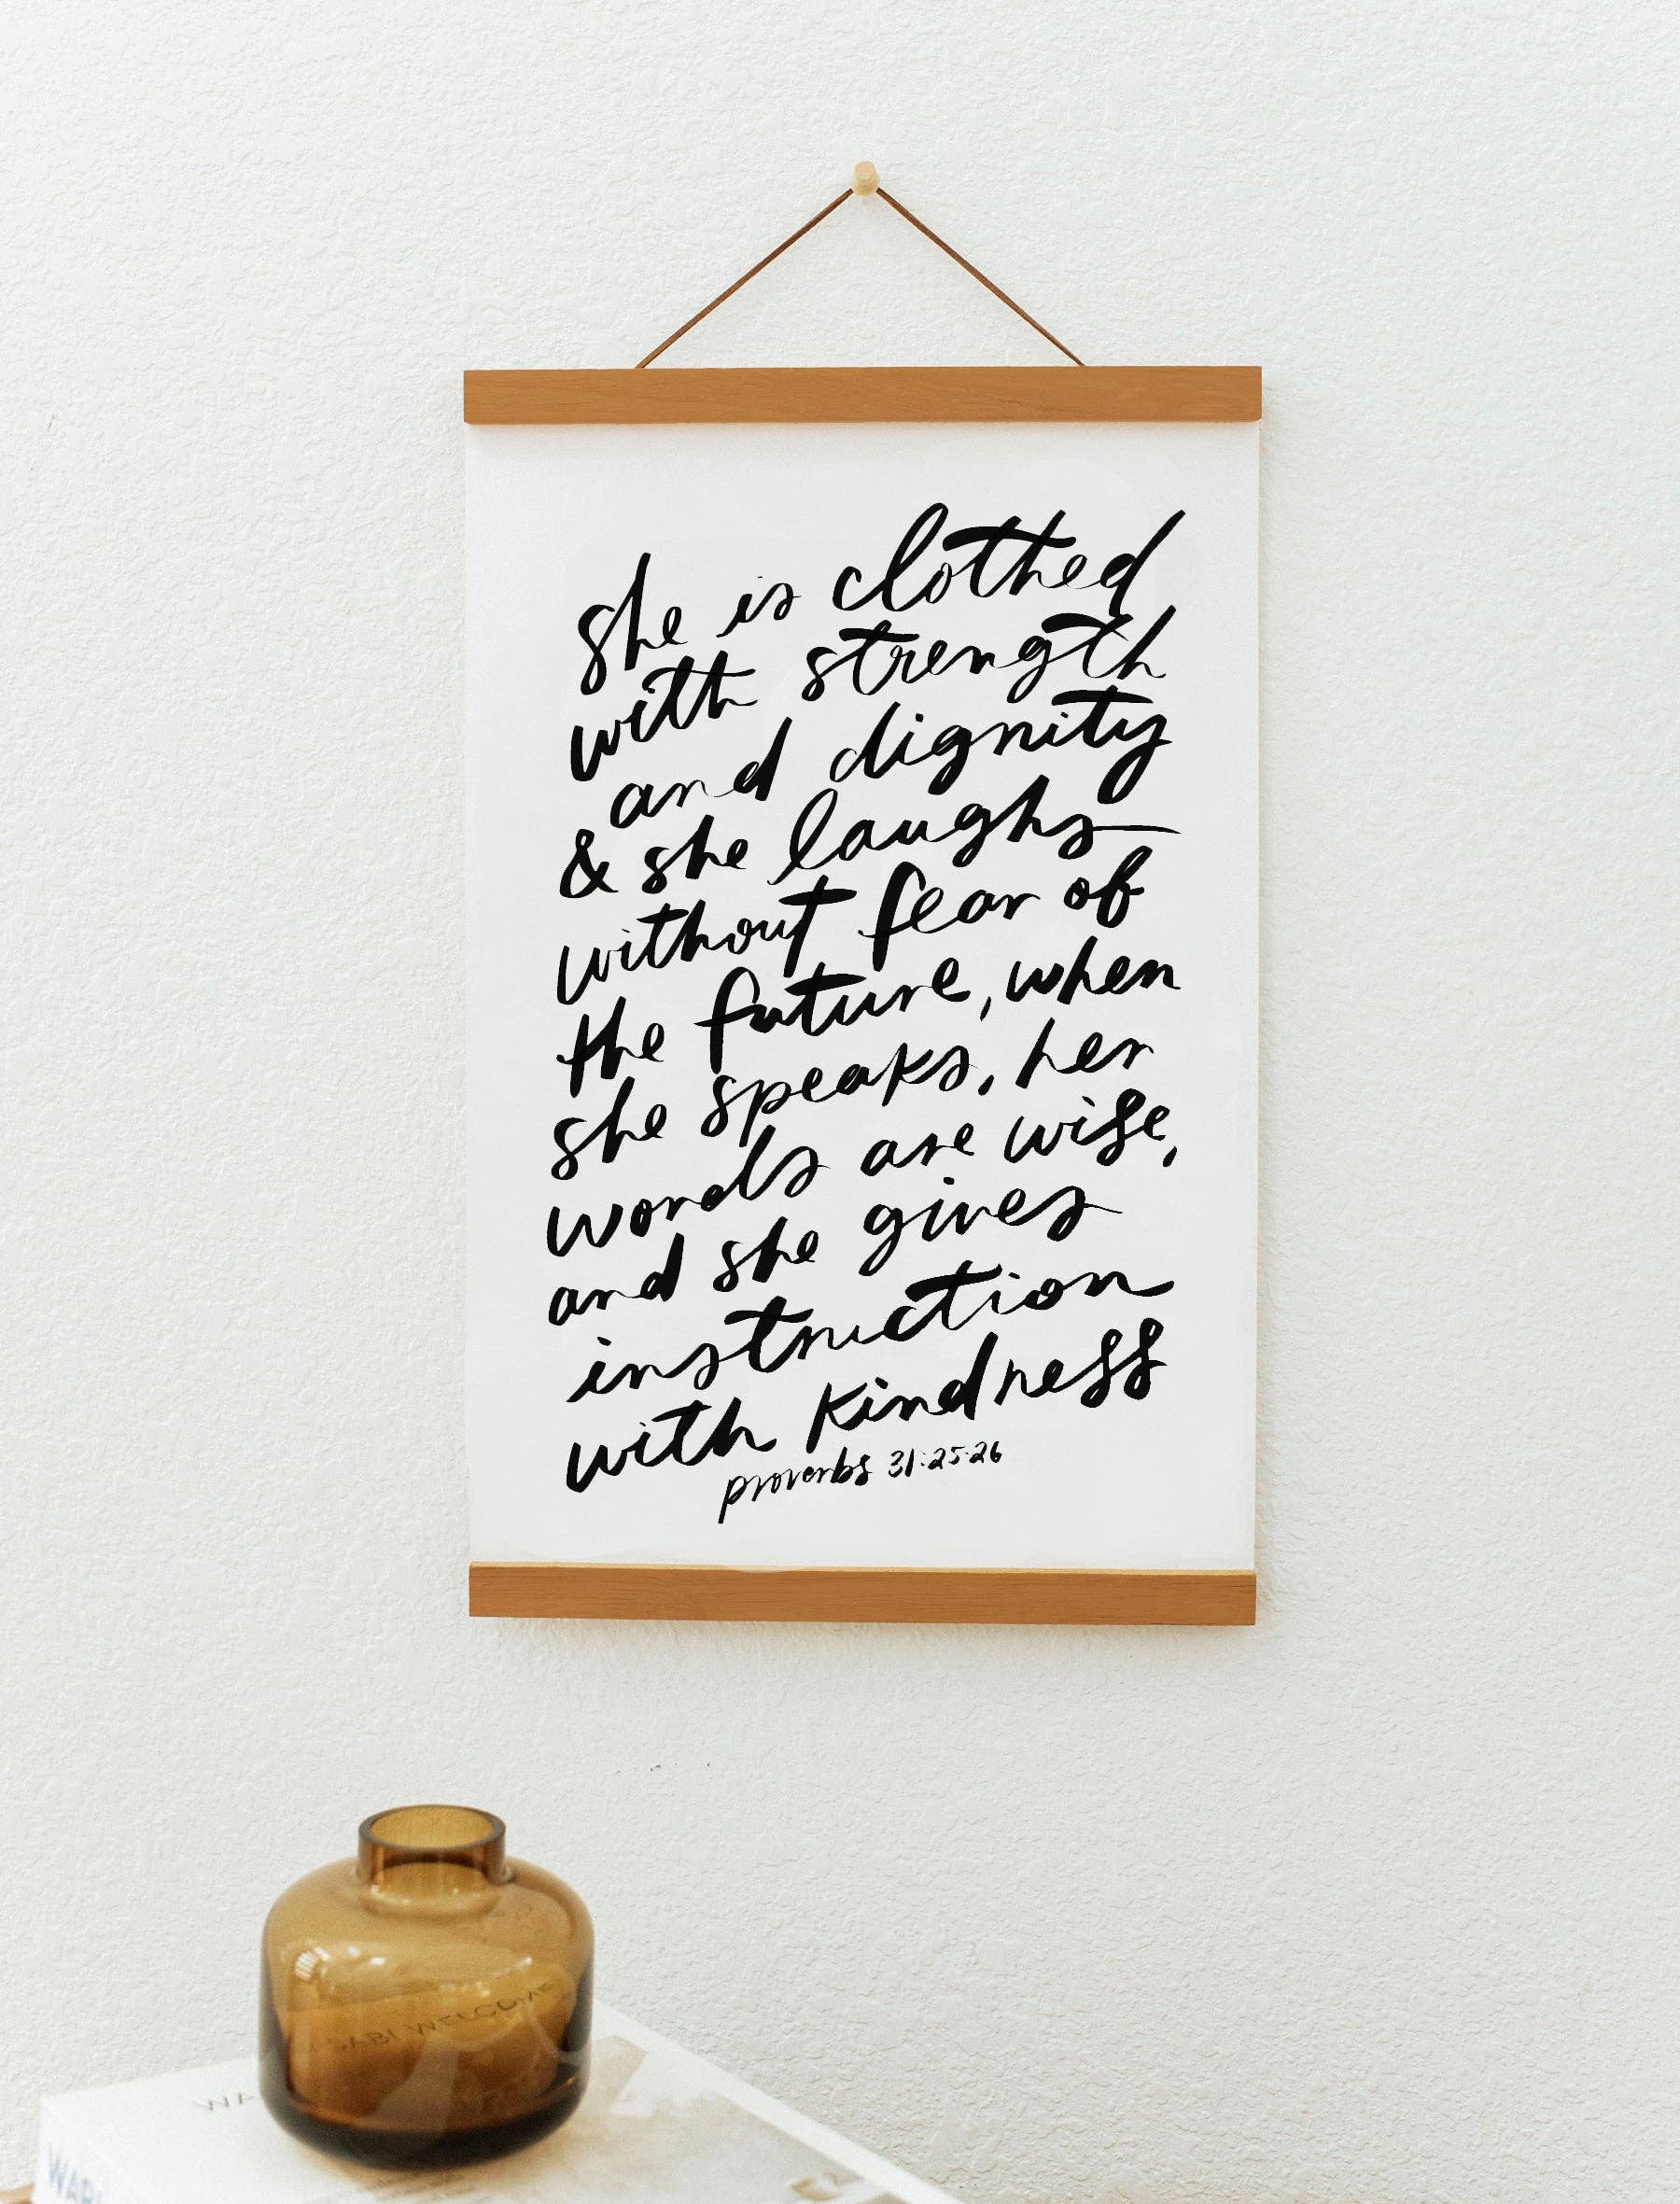 she is clothed
with strength
and dignity
& she laughs
without fear of
the future, when
she speaks, her
words are wise,
and she gives
instruction
with kindness
proverbs 31:25-26
SABI WELCOME
WA
WABI